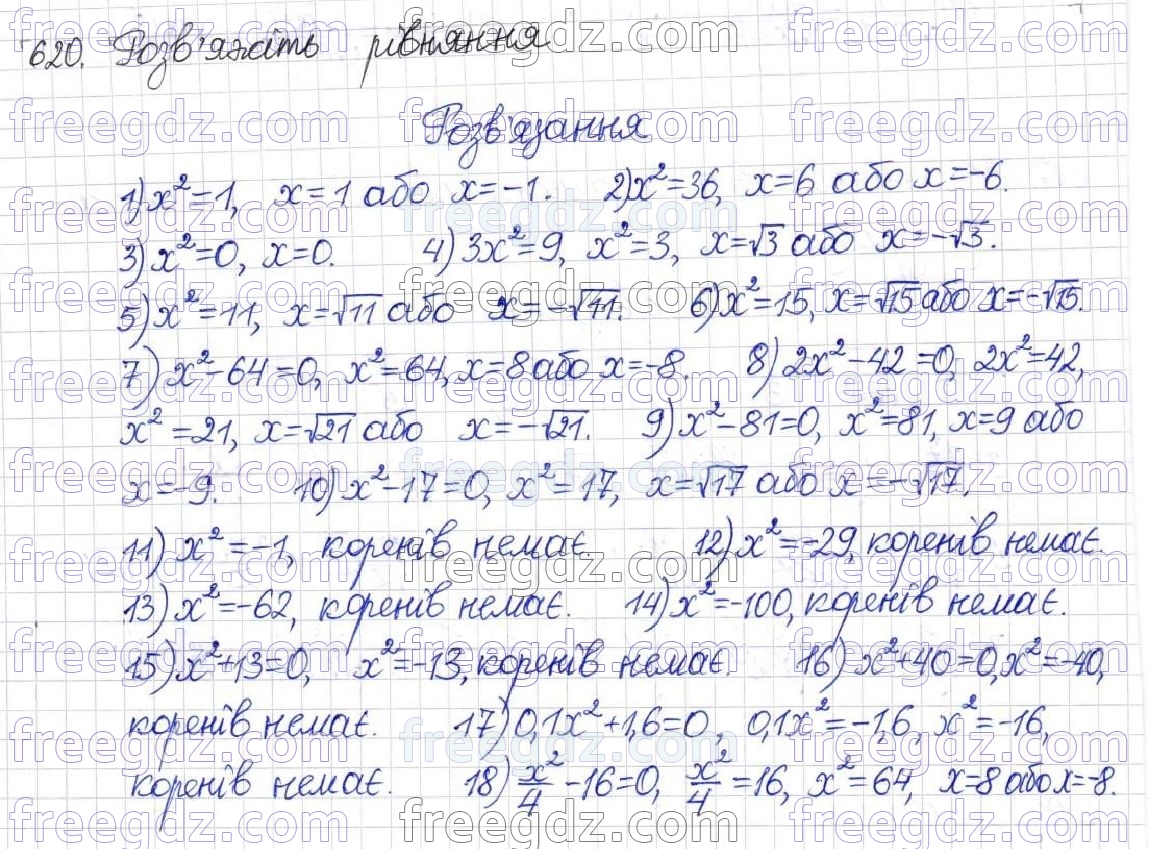 620. Розв'яжіть рівняння
Розв'язання
1) x²=1, x=1 або x=-1. 2) x²=36, x=6 або x=-6.
3) x²=0, x=0. 4) 3x²=9, x²=3, x=√3 або x=-√3.
5) x²=11, x=√11 або x=-√11. 6) x²=15, x=√15 або x=-√15.
7) x²-64=0, x²=64, x=8 або x=-8. 8) 2x²-42=0, 2x²=42,
x²=21, x=√21 або x=-√21. 9) x²-81=0, x²=81, x=9 або
x=-9. 10) x²-17=0, x²=17, x=√17 або x=-√17.
11) x²=-1, коренів немає. 12) x²=-29, коренів немає.
13) x²=-62, коренів немає. 14) x²=-100, коренів немає.
15) x²+13=0, x²=-13, коренів немає. 16) x²+40=0, x²=-40,
коренів немає. 17) 0,1x²+1,6=0, 0,1x²=-1,6, x²=-16,
коренів немає. 18) x²/4-16=0, x²/4=16, x²=64, x=8 або x=-8.
freegdz.com